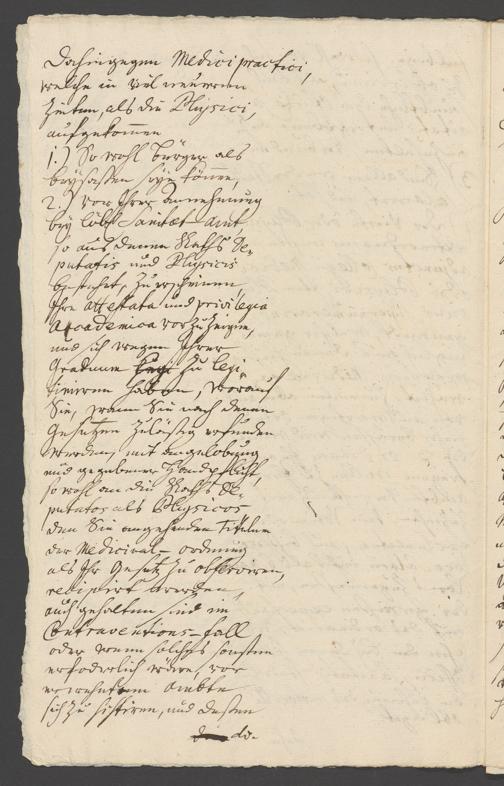 Dahingegen Medici practici,
welche in viel neueren
Zeiten, als die Physici,
aufgekommen
1.) So wohl burger als
beysassen seyn können,
2.) vor Ihrer annehmung
bey löbl. Sanitæt-amt,
so aus denen Raths De-
putatis und Physicis
bestehet, zu erscheinen,
Ihre attestata und privilegia
academica vorzuzeigen,
und sich wegen Ihrer
Graduum zu legi-
timiren haben, worauf
Sie, wann Sie nach denen
Gesetzen zuläßig erfunden
werden, mit angelobung
und gegebener Handpflicht,
so wohl an die Raths De-
putatos als Physicos
den Sie angehenden Titulum
der Medicinal-ordnung
als Ihr Gesetz zu observiren,
recipirt werden,
auch gehalten sind im
Contraventions-fall
oder wenn solches sonsten
erforderlich wäre, vor
erwehntem Ambte
sich zu sistiren, und dessen
di-